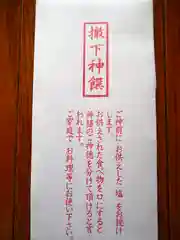 撤下神饌
ご神前にお供えした 塩 をお授け
します。
お供えされた食べ物を口にすると
神様のご神徳を分けて頂けると言
われます。
ご家庭でお料理等にお使い下さい。